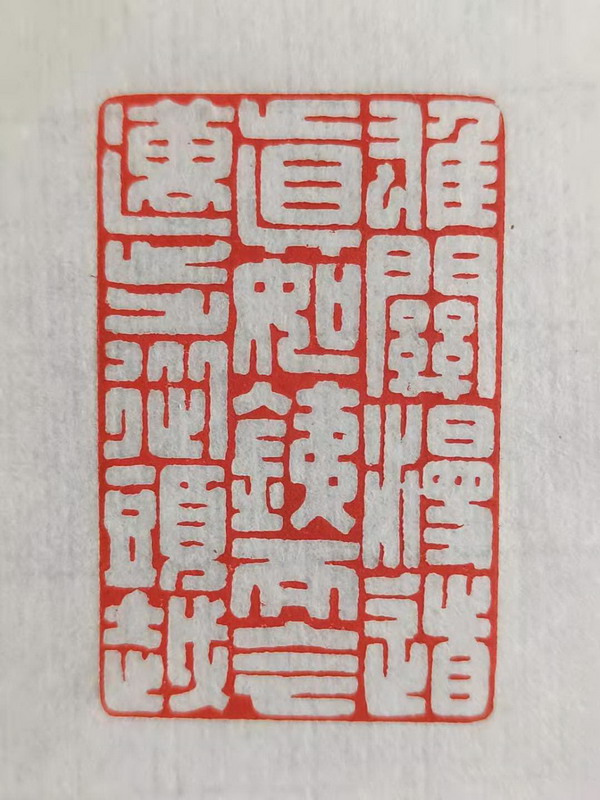 雄關漫道
真如鐵而今
邁步從頭越